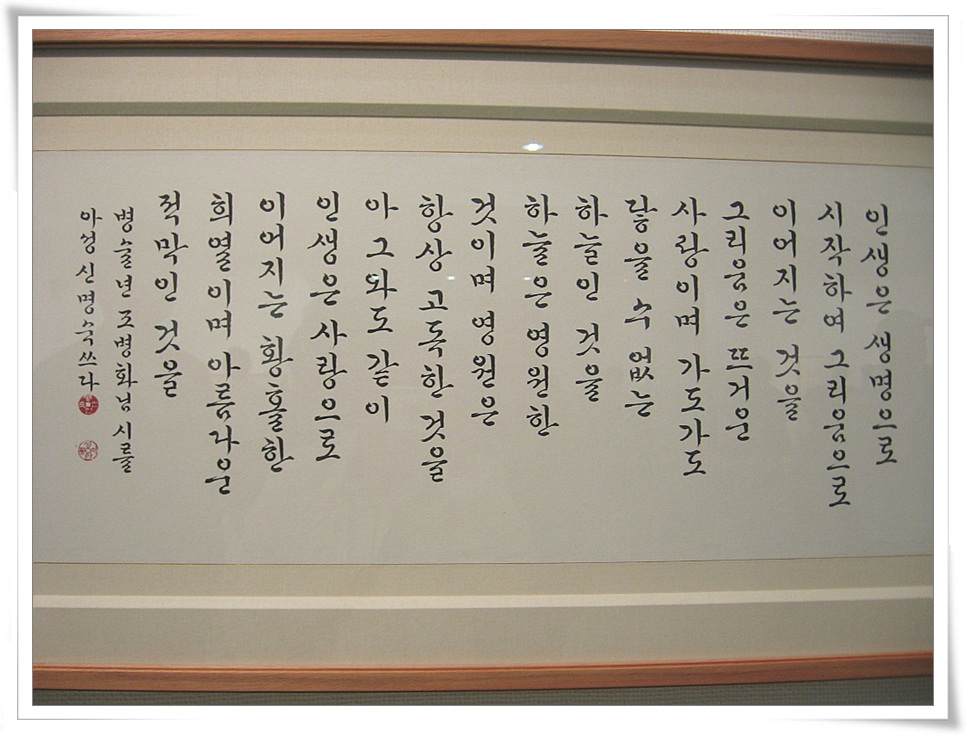 인생은 생명으로
시작하여 그리움으로
이어지는 것을
그리움은 뜨거운
사랑이며 가도가도
닿을 수 없는
하늘인 것을
하늘은 영원한
것이며 영원은
항상 고독한 것을
아 그와도 같이
인생은 사랑으로
이어지는 황홀한
희열이며 아름다운
적막인 것을
병술년 조병화님 시를
아정 신명숙 쓰다